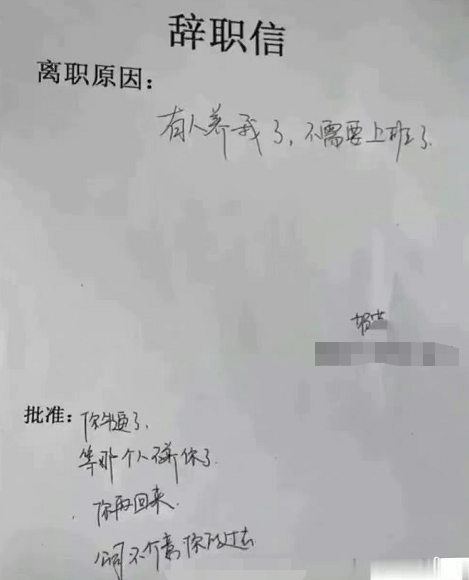 辞职信
离职原因：
有人养我了，不需要上班了.
批准：你牛逼了，
等那个人不养你了
你再回来.
公司不介意你的过去